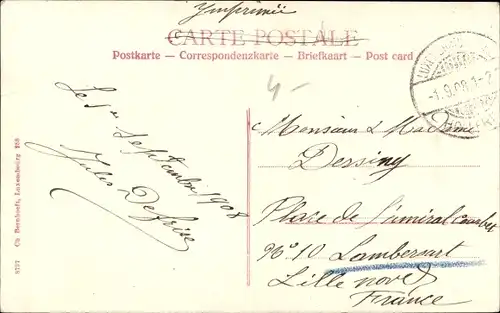 Imprimée
CARTE POSTALE
Postkarte — Correspondenzkarte — Briefkaart — Post card
4-
-1.9.08.1-2
Le 1er Septembre 1908
Jules Defrise
Monsieur & Madame
Dessiny
Place de l'amiral Courbet
N° 10 Lambersart
Lille nord
France
Ch Bernhoeft, Luxembourg